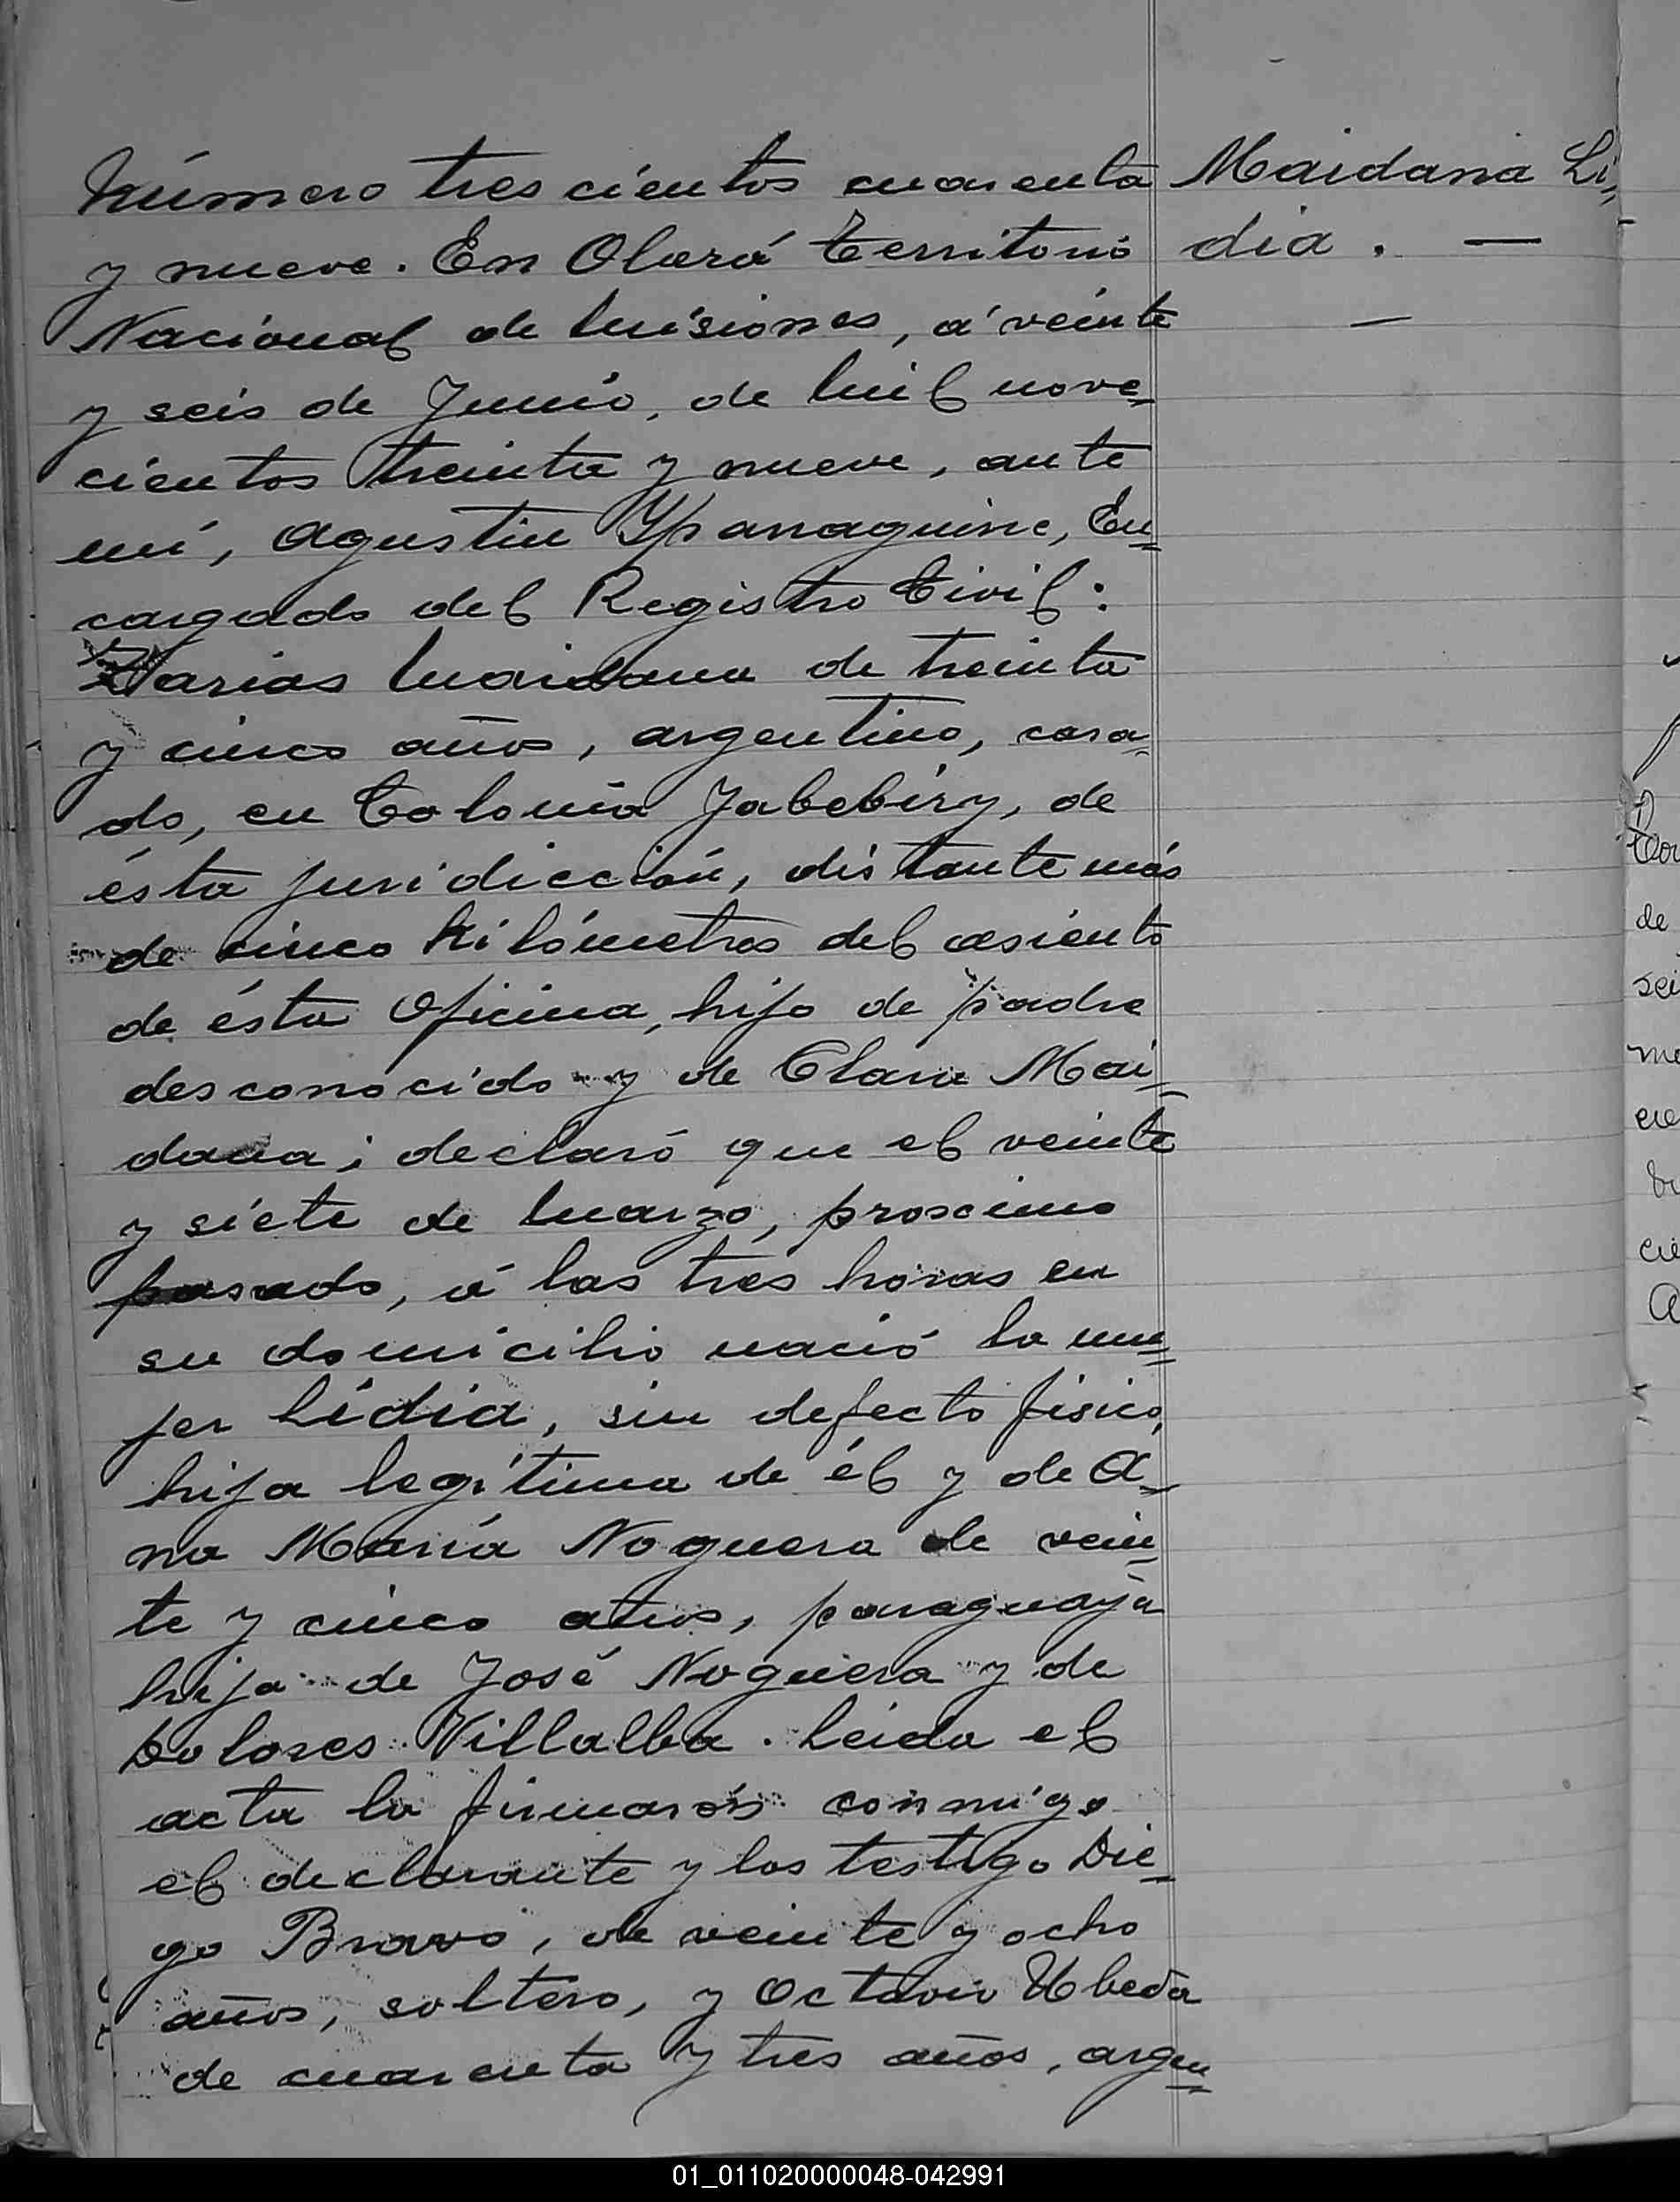 Número trescientos cuarenta
y nueve. En Oberá Territorio
Nacional de Misiones, á veinte
y seis de Junio, de mil nove=
cientos treinta y nueve, ante
mí, Agustin Yparraguirre, En=
cargado del Registro Civil:
Zarias Maidana de treinta
y cinco años, argentino, casa=
do, en Colonia Yabebiry, de
ésta juridicción, distante más
de cinco Kilómetros del asiento
de ésta Oficina, hijo de padre
desconocido y de Clara Mai=
dana; declaró que el veinte
y siete de Marzo, proscimo
pasado, á las tres horas en
su domicilio nació la mu=
jer Lidia, sin defecto físico,
hija legítima de él y de A=
na María Noguera de vein=
te y cinco años, paraguaya
hija de José Noguera y de
Dolores Villalba. Leida el
acta la firmarón conmigo
el declarante y los testigo Die=
go Bravo, de veinte y ocho
años, soltero, y Octavio Ubeda
de cuarenta y tres años, argen=
Maidana Li=
dia. —
—
de
01_011020000048-042991